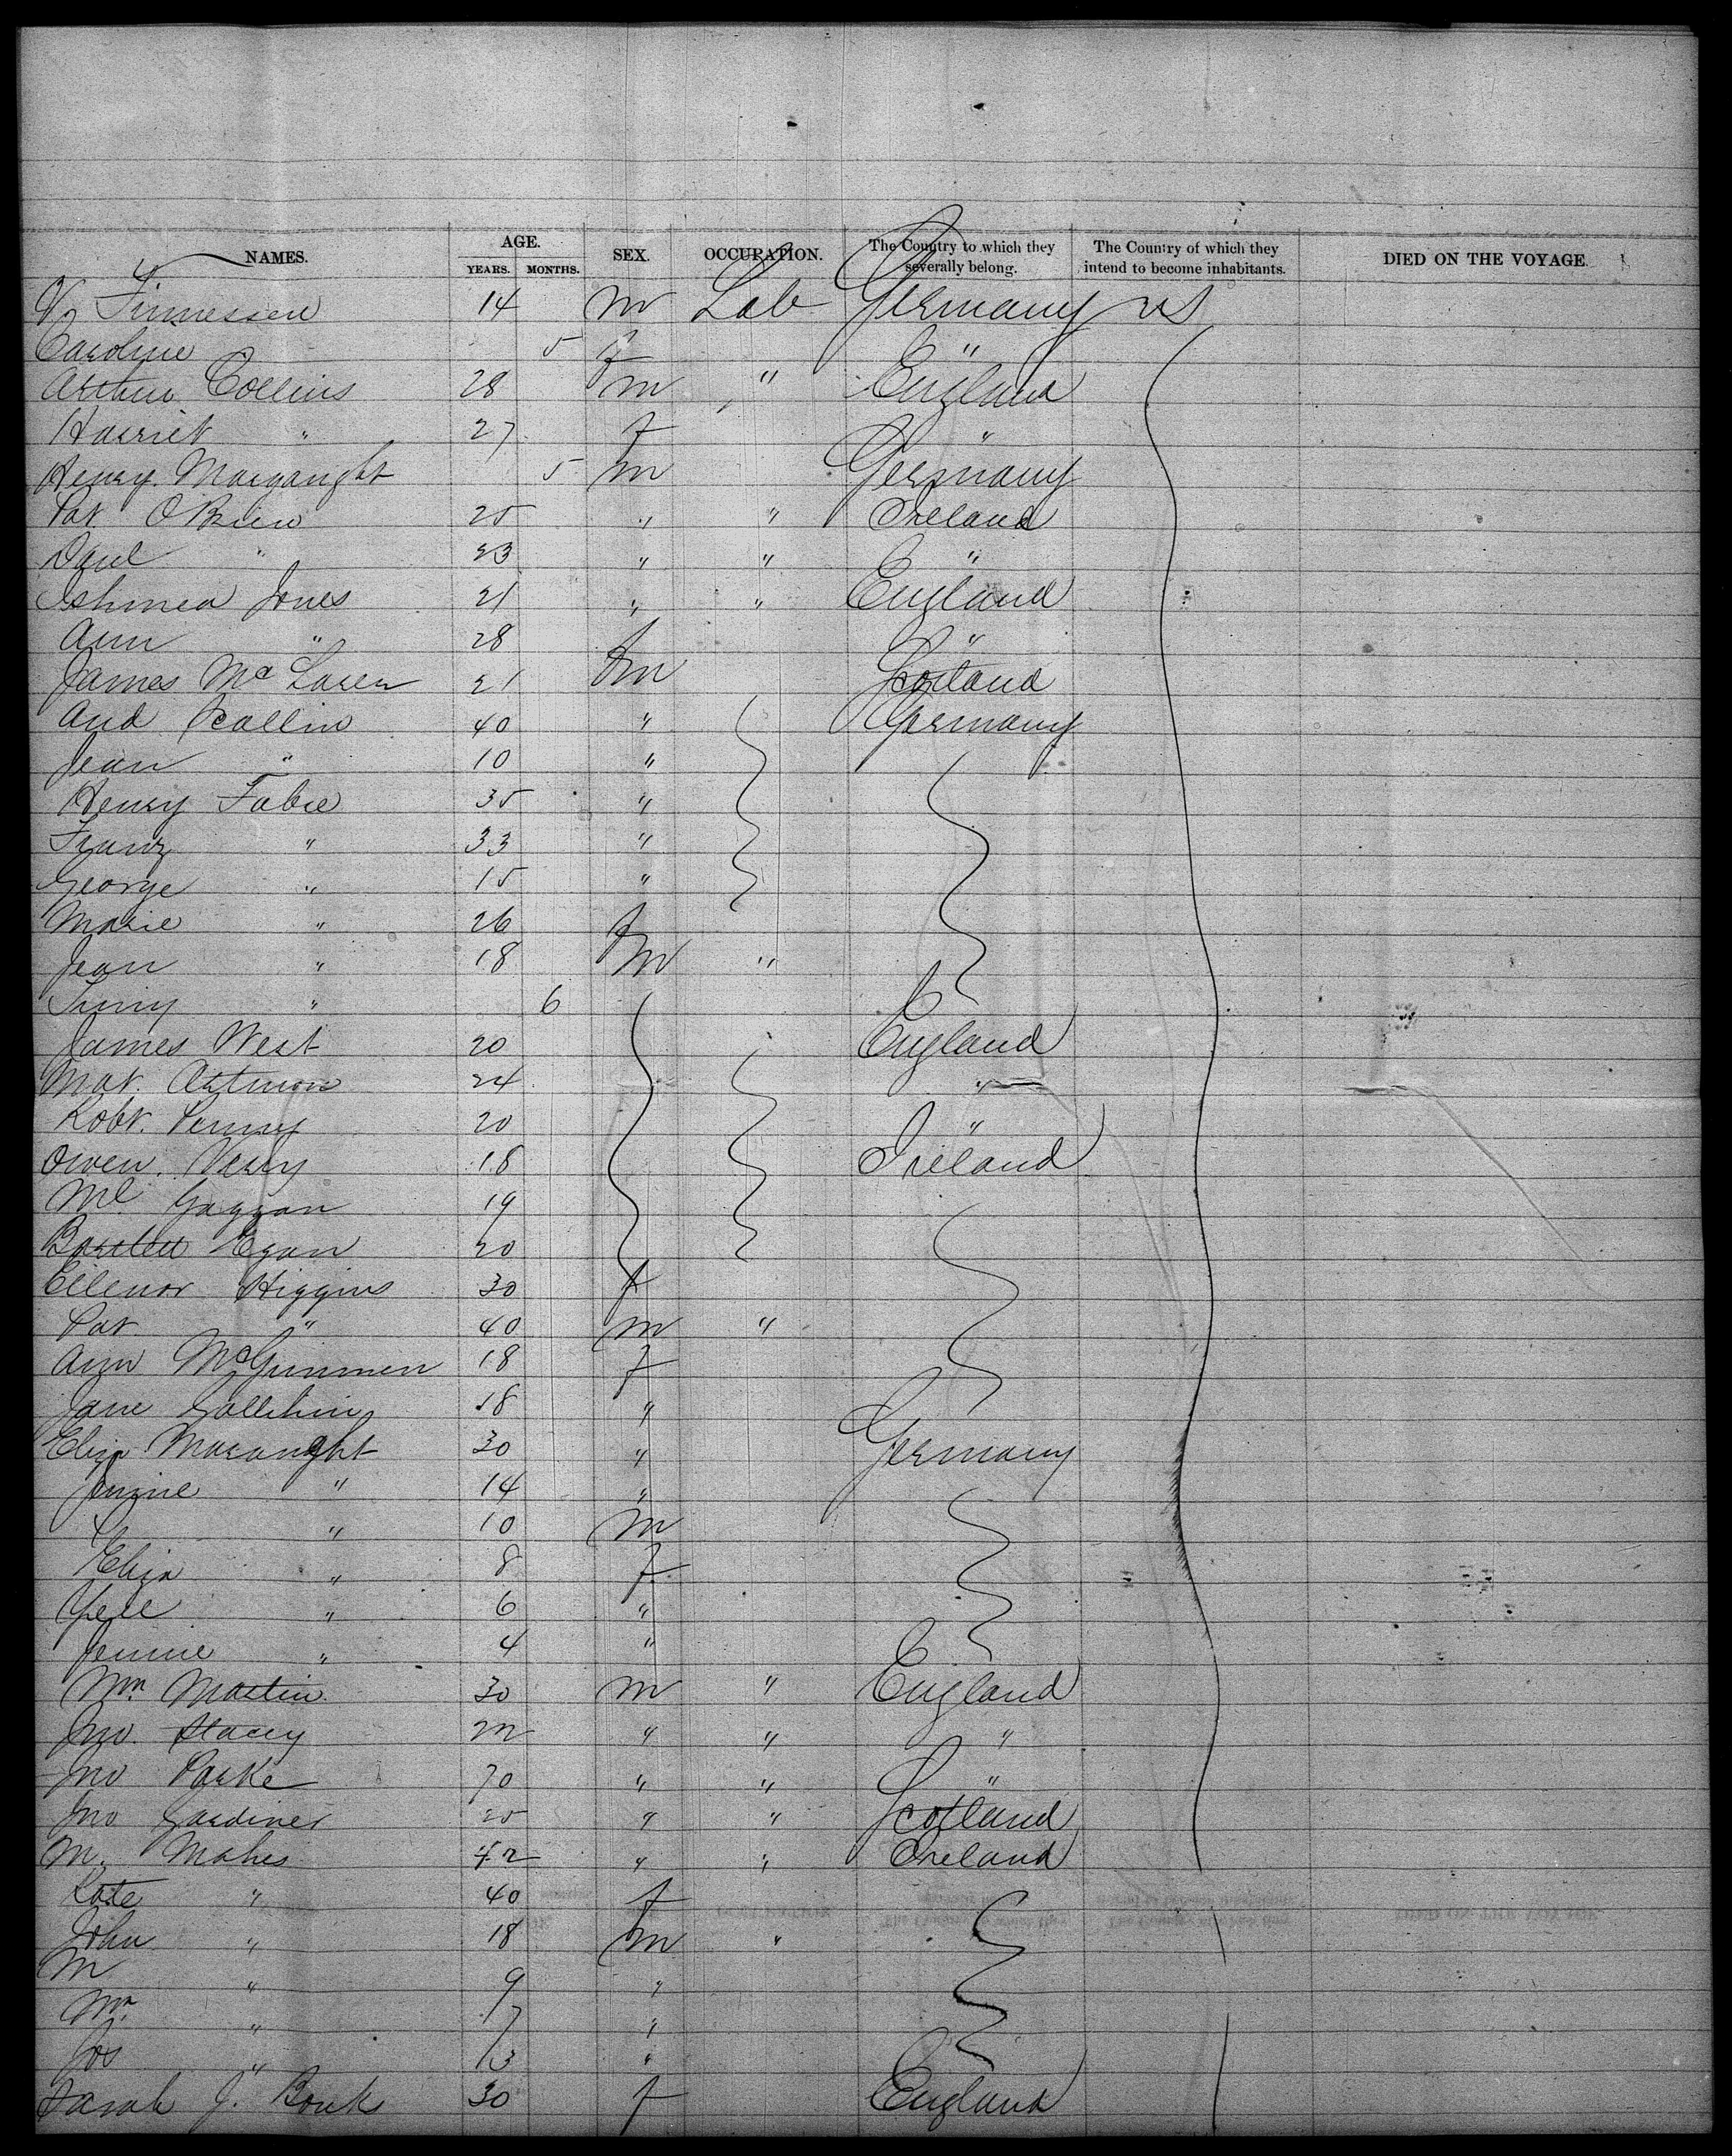 NAMES. AGE. YEARS. MONTHS. SEX. OCCUPATION. The Country to which they severally belong. The Country of which they intend to become inhabitants. DIED ON THE VOYAGE.
14 m Lab Germany US
Caroline 5 f "
Arthur Collins 28 m " England
Harriet " 27 f "
Henry 5 m Germany
Pat O'Brien 25 " " Ireland
" 23 " " "
Jones 21 " " England
Ann " 28 f "
James McLaren 21 m Scotland
And 40 " Germany
Jean " 10 "
Henry Fabre 35 "
Franz " 33 "
George " 15 "
Marie " 26 f
Jean " 18 m "
" 6
James West 20 England
Mat. 24 "
Robt. 20 "
Owen 18 Ireland
Ml Gaggan 19
Bartlett Egan 20
Ellenor Higgins 30 f
Pat " 40 m "
Ann 18 f
Jane 18 "
Eliza 30 " Germany
" 14 "
" 10 m
Eliza " 8 f
" 6 "
Jennie " 4 "
Wm Martin 30 m " England
Jno. Stacey 22 " " "
Jno Parke 70 " " "
Jno Gardiner 25 " " Scotland
M. Maher 42 " " Ireland
Kate " 40 f
John " 18 m "
M " 9 "
Wm. " 17 "
Jos " 13 "
Sarah J. 30 f England